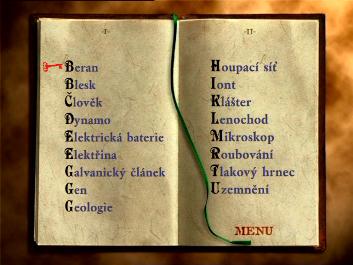 -I-
Beran
Blesk
Člověk
Dynamo
Elektrická baterie
Elektřina
Galvanický článek
Gen
Geologie
-II-
Houpací síť
Iont
Klášter
Lenochod
Mikroskop
Roubování
Tlakový hrnec
Uzemnění
MENU